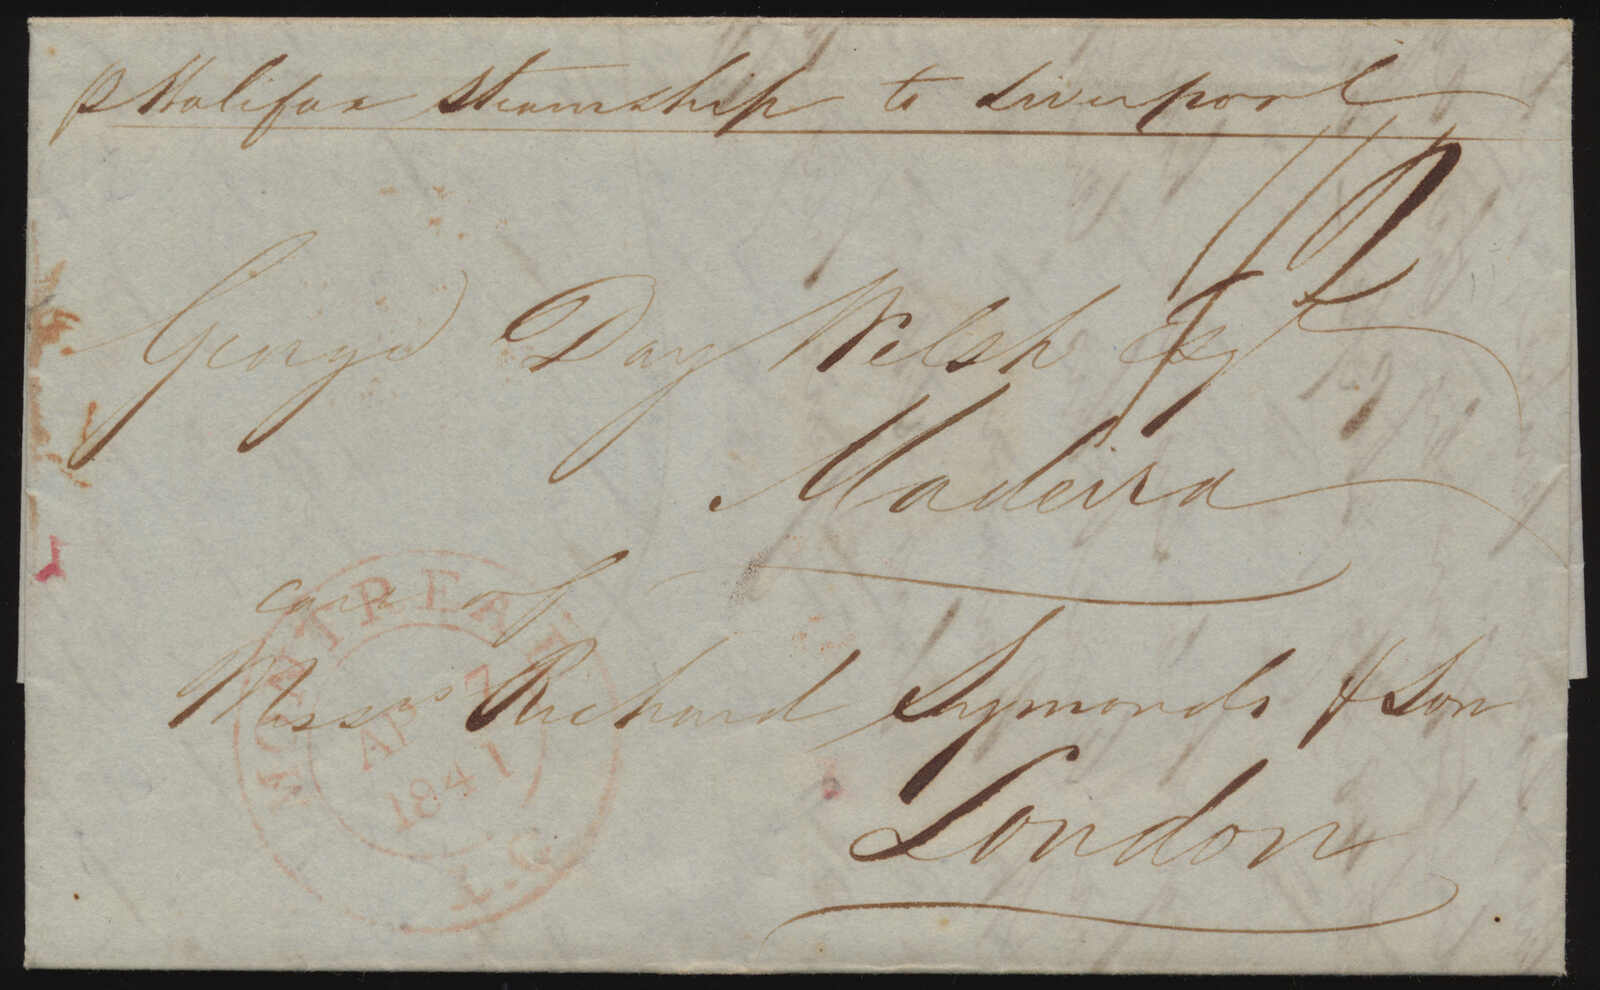 p Halifax steamship to Liverpool
1/2
George Day Welsh Esqr
Madeira
care of
Messrs Richard Symonds & Son
London
MONTREAL L.C.
AP 7
1841